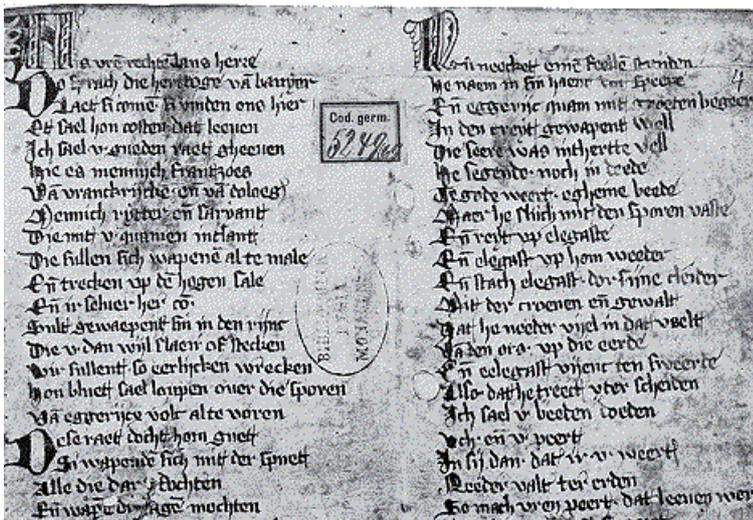 Als vrē rechte lans herre
Do sprach die hertoge vā baryer
Laet si comē si vinden ons hier
Et sael hon costen dat leeuen
Ich sael v gueden raet gheeuen
Hie es mennich frantzoes
Vā vranckrijche en vā
Mennich rytter eñ sariant
Die mit v quamen int lant
Die sullen sich wapenē al te male
Eñ trecken vp dē hogen sale
Eñ ir schier her co
Sult gewaepent sin in den rijnc
Die v dan wijl slaen of stecken
Wir sullent so eerlicken wrecken
Hon bluet sael loupen ouer die sporen
Vā eggerijce volc al te voren
Dese raet docht hom guet
Si wapende sich mit der spuet
Alle die dar dochten
Eñ wapē dragē mochten
Cod. germ.
5249
BIBLIOTHECA
REGIA
MONACENSIS
4
eñ
He naem in sin hant een speere
Eñ eggeric quam mit groeten
In den creyt gewapent well
Die seere was int hertte vell
He segende noch in deede
Te gode weert egheine beede
Maer he sluch mit den sporen vaste
Eñ reyt vp elegaste
Eñ elegast vp hom weeder
Eñ stach elegast dor sijne cleider
Mit der croenen eñ gewalt
Dat he neder vijel in dat velt
Vā den ors vp die eerde
Eñ elegast vijenc ten sweerde
Also dat he treect vter scheiden
Ich sael v beeden doeden
Vch eñ v peert
In sij dan dat ir v weert
Needer valt ter erden
So mach vren peert dat leeuen